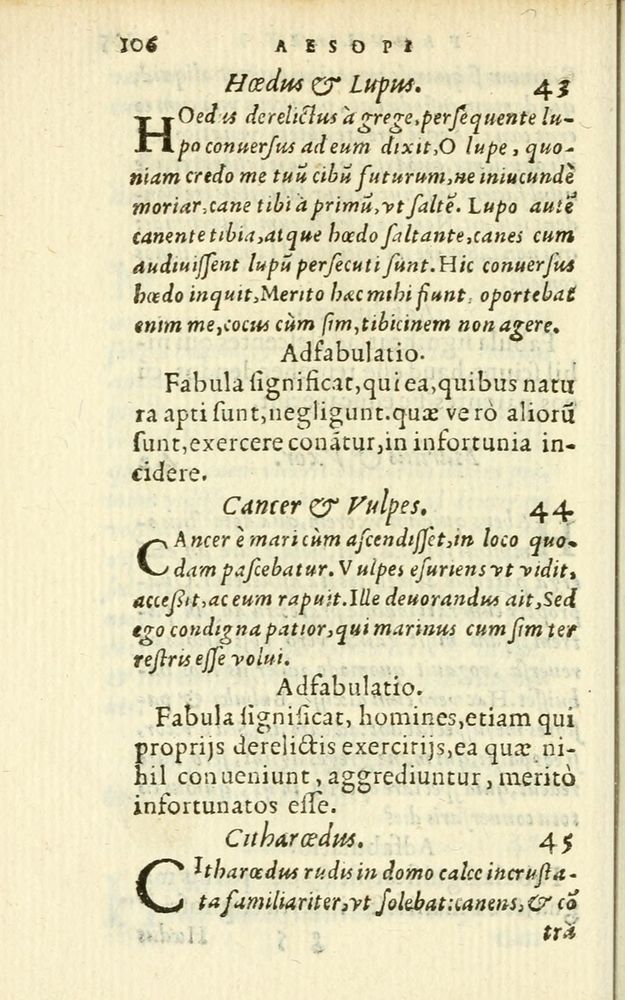 106 AESOPI
Hœdus & Lupus. 43
HOedus derelictus à grege, persequente lu-
po conuersus ad eum dixit, O lupe, quo-
niam credo me tuũ cibũ futurum, ne iniucundè
moriar, cane tibi à primũ, vt saltẽ. Lupo autẽ
canente tibia, atque hœdo saltante, canes cum
audiuissent lupũ persecuti sunt. Hic conuersus
hœdo inquit, Merito hæc mihi fiunt, oportebat
enim me, cocus cùm sim, tibicinem non agere.
Adfabulatio.
Fabula significat, qui ea, quibus natu
ra apti sunt, negligunt. quæ verò aliorũ
sunt, exercere conãtur, in infortunia in-
cidere.
Cancer & Vulpes. 44
CAncer è mari cùm ascendisset, in loco quo-
dam pascebatur. Vulpes esuriens vt vidit,
accessit, ac eum rapuit. Ille deuorandus ait, Sed
ego condigna patior, qui marinus cum sim ter
restris esse volui.
Adfabulatio.
Fabula significat, homines, etiam qui
proprijs derelictis exercitijs, ea quæ ni-
hil conueniunt, aggrediuntur, meritò
infortunatos esse.
Citharœdus. 45
CItharœdus rudis in domo calce incrusta-
ta familiariter, vt solebat: canens, & cõ
trà